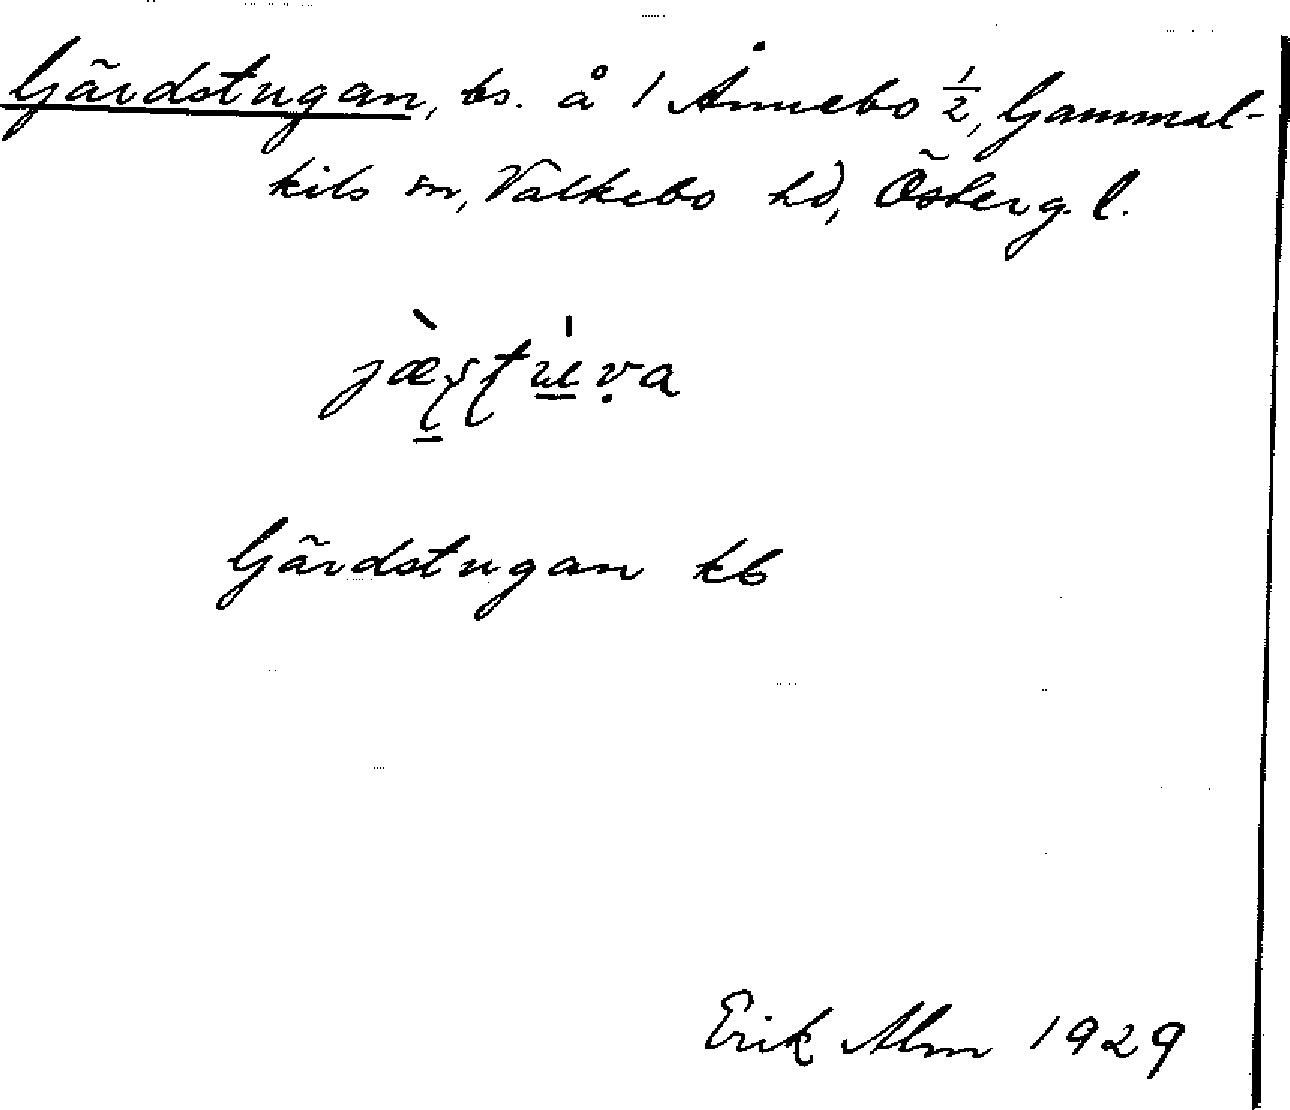 Gärdstugan, bs. å 1 Ånnebo 1/2, Gammal-
kils sn, Valkebo hd, Österg. l.
Gärdstugan kb
Erik Alm 1929